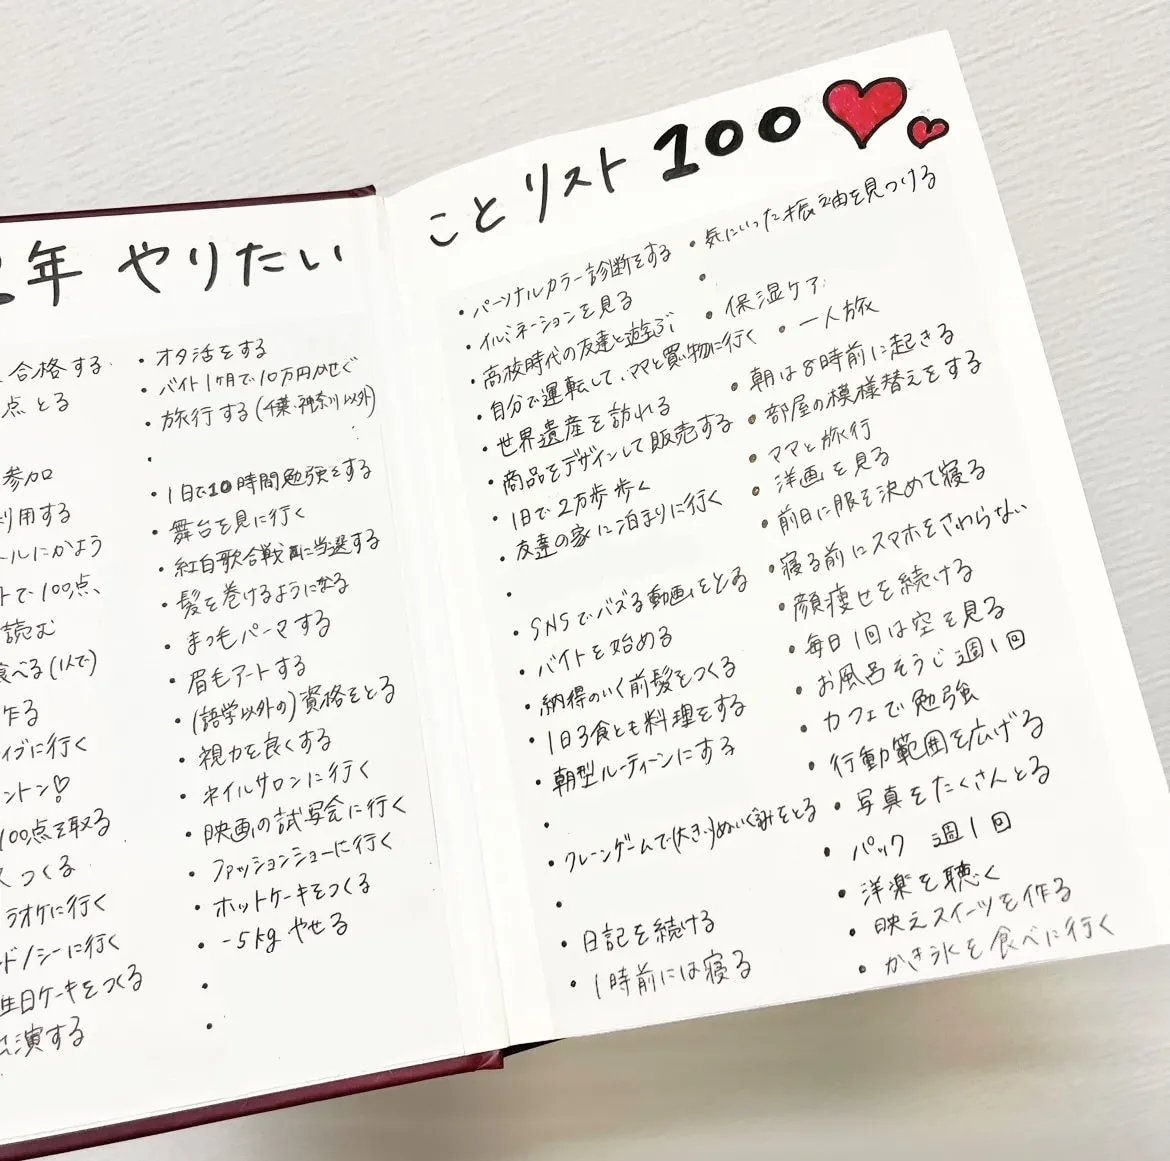 年 やりたい
ことリスト 100
合格する
点とる
参加
利用する
ールにかよう
トで100点、
読む
食べる(1人で)
作る
イブに行く
ントン
100点を取る
くつくる
ラオケに行く
ドノシーに行く
生日ケーキをつくる
演する
・オタ活をする
・バイト1ヶ月で10万円かせぐ
・旅行する(千葉・神奈川以外)
・
・1日で10時間勉強をする
・舞台を見に行く
・紅白歌合戦に当選する
・髪を巻けるようになる
・まつ毛パーマする
・眉毛アートする
・(語学以外の)資格をとる
・視力を良くする
・ネイルサロンに行く
・映画の試写会に行く
・ファッションショーに行く
・ホットケーキをつくる
・-5kgやせる
・
・
・パーソナルカラー診断をする
・イルミネーションを見る
・高校時代の友達と遊ぶ
・自分で運転して、ママと買い物に行く
・世界遺産を訪れる
・商品をデザインして販売する
・1日で2万歩歩く
・友達の家に泊まりに行く
・
・SNSでバズる動画をとる
・バイトを始める
・納得のいく前髪をつくる
・1日3食とも料理をする
・朝型ルーティーンにする
・
・クレーンゲームで(大きい)ぬいぐるみをとる
・
・日記を続ける
・1時前には寝る
・気にいった振袖を見つける
・
・保湿ケア
・一人旅
・朝は8時前に起きる
・部屋の模様替えをする
・ママと旅行
・洋画を見る
・前日に服を決めて寝る
・寝る前にスマホをさわらない
・顔痩せを続ける
・毎日1回は空を見る
・お風呂そうじ週1回
・カフェで勉強
・行動範囲を広げる
・写真をたくさんとる
・パック 週1回
・洋楽を聴く
・映えスイーツを作る
・かき氷を食べに行く